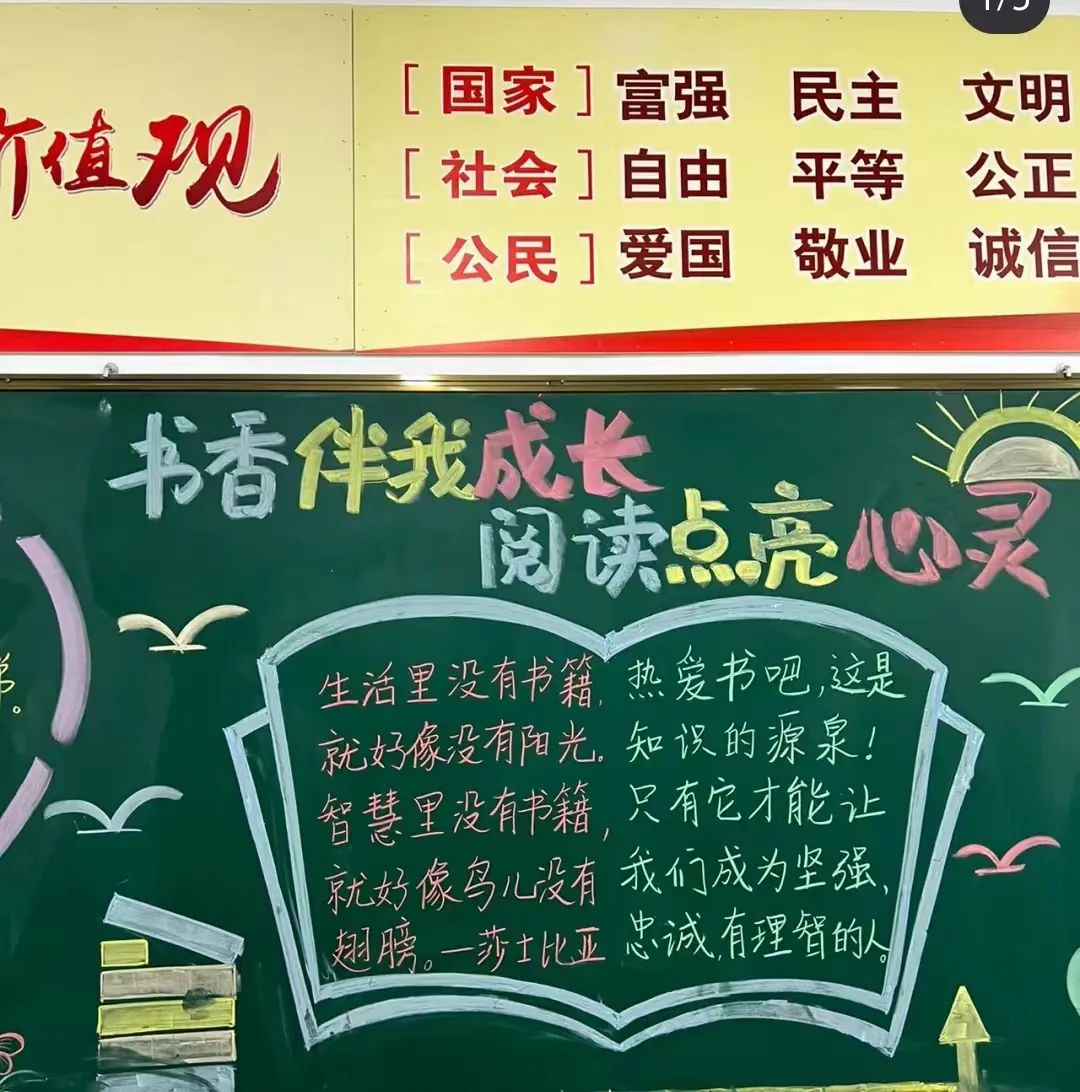 1/5
价值观
[国家] 富强 民主 文明
[社会] 自由 平等 公正
[公民] 爱国 敬业 诚信
书香伴我成长
阅读点亮心灵
生活里没有书籍,
就好像没有阳光。
智慧里没有书籍,
就好像鸟儿没有
翅膀。—莎士比亚
热爱书吧,这是
知识的源泉!
只有它才能让
我们成为坚强,
忠诚,有理智的人。